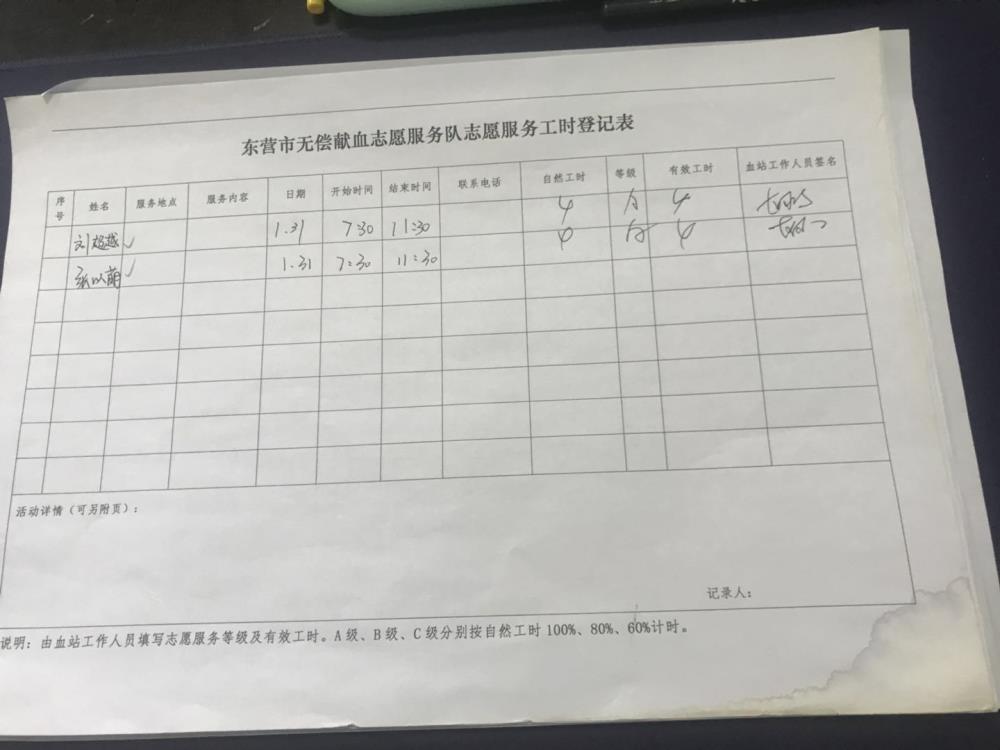 东营市无偿献血志愿服务队志愿服务工时登记表
序号 姓名 服务地点 服务内容 日期 开始时间 结束时间 联系电话 自然工时 等级 有效工时 血站工作人员签名
刘超越 ✓ 1.31 7:30 11:30 4 A 4
张以萌 ✓ 1.31 7:30 11:30 4 A 4
活动详情（可另附页）：
记录人：
说明：由血站工作人员填写志愿服务等级及有效工时。A级、B级、C级分别按自然工时100%、80%、60%计时。